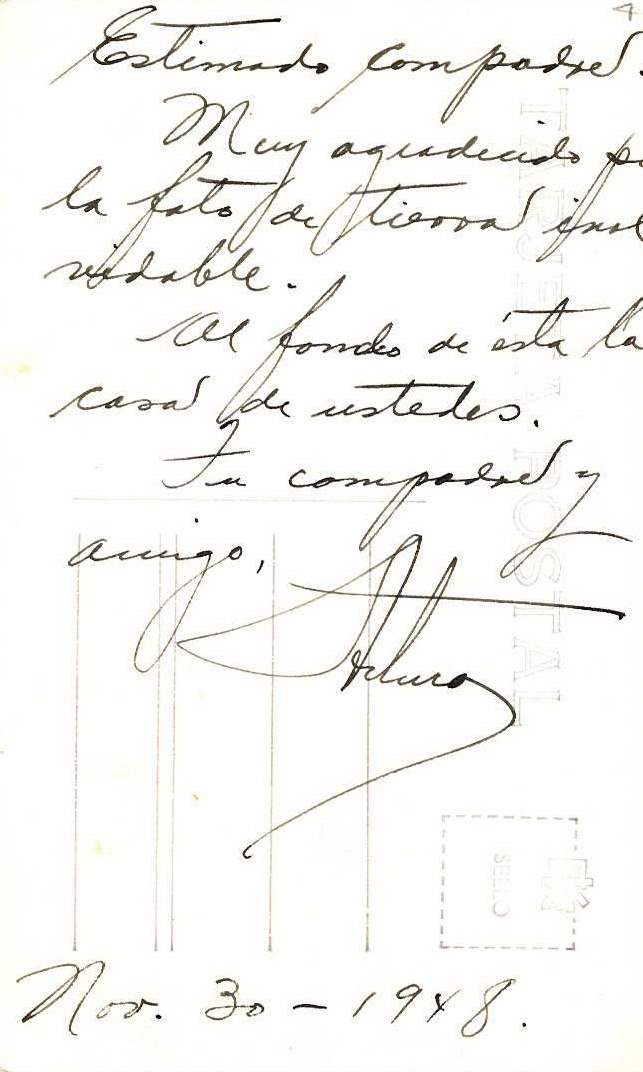 4
Estimado compadre.
Muy agradecido po
la foto de tierra inol
vidable.
Al fondo de ésta la
casa de ustedes.
Tu compadre y
amigo,
Arturo
Nov. 30 - 1948.
TARJETA POSTAL
SELLO